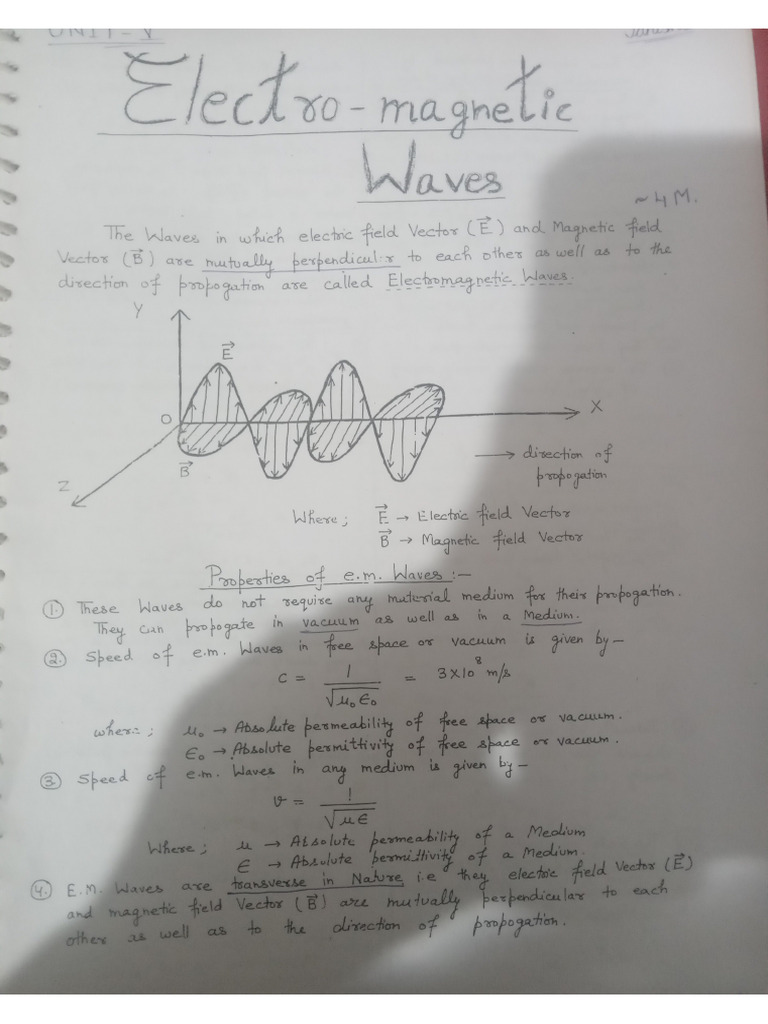 UNIT-V
Electro-magnetic
Waves
~4M.
The Waves in which electric field Vector (E⃗) and Magnetic field
Vector (B⃗) are mutually perpendicular to each other as well as to the
direction of propogation are called Electromagnetic Waves.
Y
E⃗
O
X
B⃗
Z
→ direction of
propogation
Where; E⃗ → Electric field Vector
B⃗ → Magnetic field Vector
Properties of e.m. Waves:-
1. These Waves do not require any material medium for their propogation.
They can propogate in vacuum as well as in a Medium.
2. Speed of e.m. Waves in free space or vacuum is given by-
c = 1/√μ₀ε₀ = 3×10⁸ m/s
where; μ₀ → Absolute permeability of free space or vacuum.
ε₀ → Absolute permittivity of free space or vacuum.
3. Speed of e.m. Waves in any medium is given by-
v = 1/√με
Where; μ → Absolute permeability of a Medium
ε → Absolute permittivity of a Medium.
4. E.M. Waves are transverse in Nature i.e they electric field Vector (E⃗)
and magnetic field Vector (B⃗) are mutually perpendicular to each
other as well as to the direction of propogation.